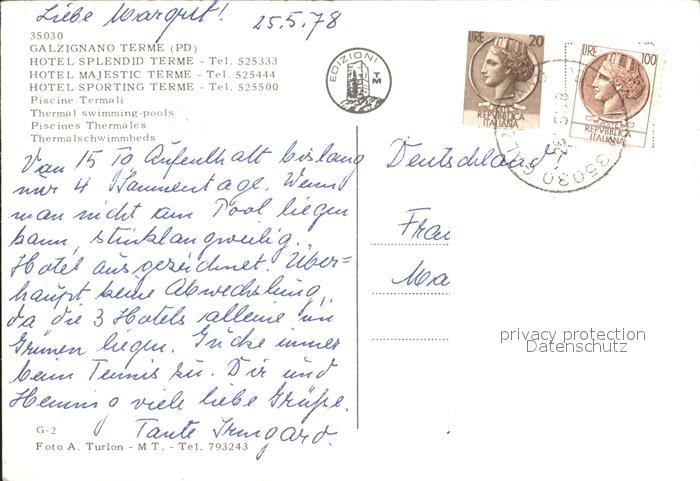 Liebe Margret! 25.5.78
35030
GALZIGNANO TERME (PD)
HOTEL SPLENDID TERME - Tel. 525333
HOTEL MAJESTIC TERME - Tel. 525444
HOTEL SPORTING TERME - Tel. 525500
Piscine Termali
Thermal swimming-pools
Piscines Thermales
Thermalschwimmbeds
EDIZIONI
TM
LIRE 20
REPVBBLICA
ITALIANA
LIRE 100
REPVBBLICA
ITALIANA
35030 GAL
Von 15 To Aufenthalt bislang
nur 4 Sonnentage. Wenn
man nicht am Pool liegen
kann, stinklangweilig.
Hotel ausgezeichnet. Über=
haupt keine Abwechslung,
da die 3 Hotels alleine im
Grünen liegen. Gucke immer
beim Tennis zu. Dir und
Henning viele liebe Grüße.
Tante Irmgard.
Deutschland!
Frau
Ma
privacy protection
Datenschutz
G-2
Foto A. Turlon - M.T. - Tel. 793243